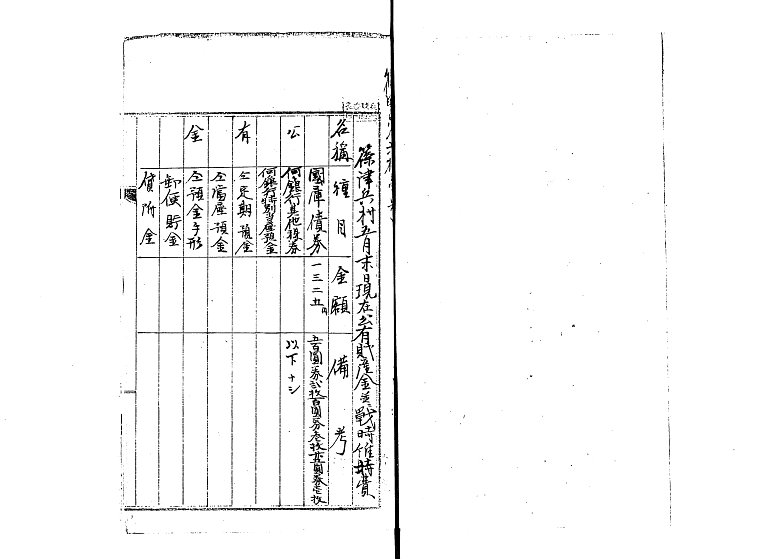 篠津兵村五月末日現在公有財産金並戦時維持費
名稱 種目 金額 備考
公有金
國庫債券 一三二五円 五百圓券弐枚百圓券参枚廿五圓券壱枚
何銀行其他株券 以下ナシ
何銀行特別当座預金
仝定期預金
仝當座預金
仝預金手形
郵便貯金
貸附金